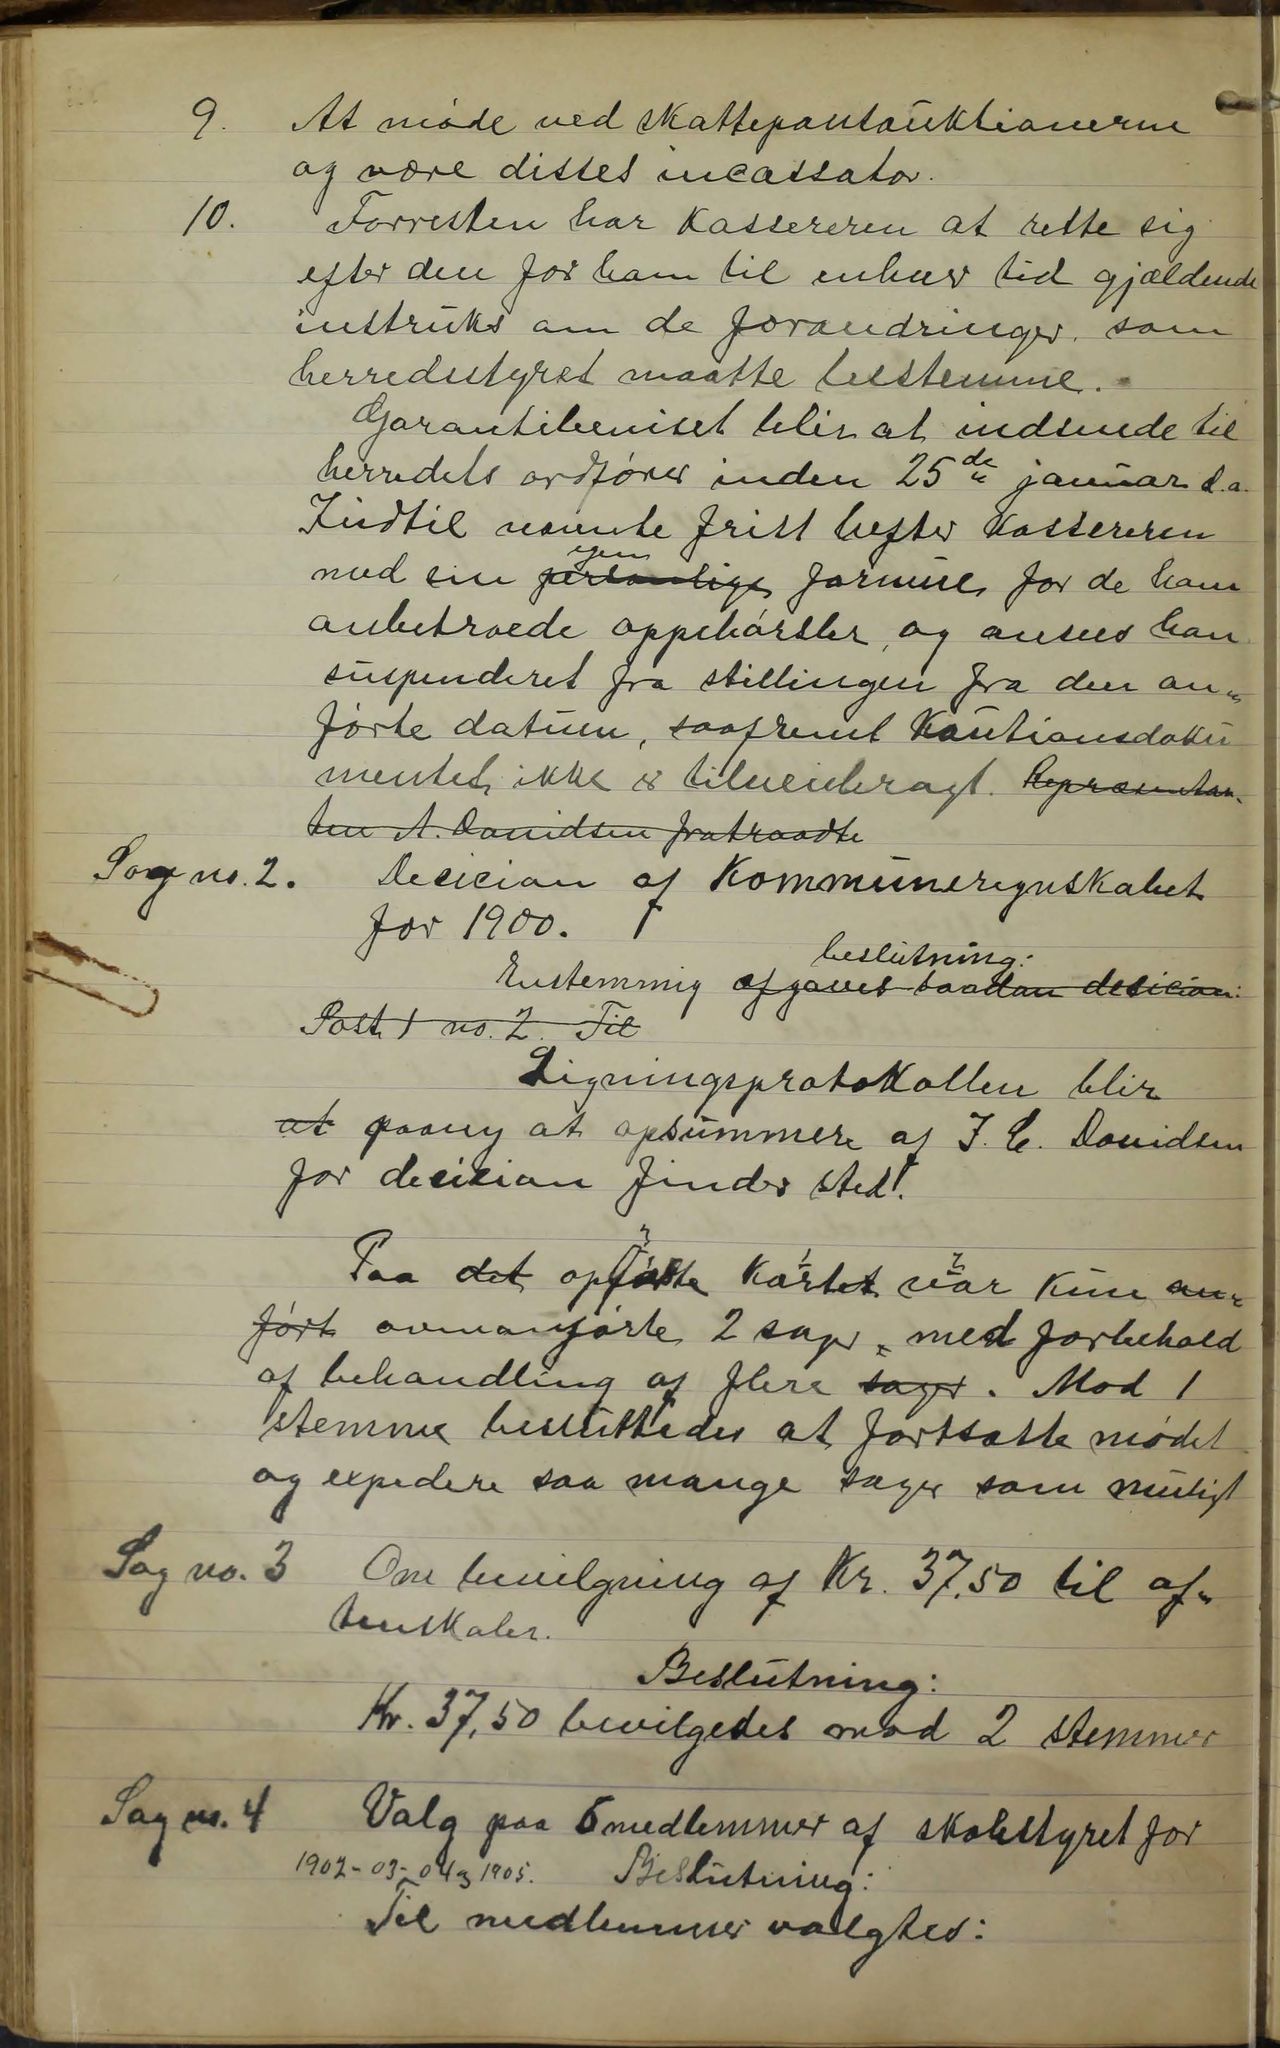 9. At møde ved skattepantauktionerne
og være disses incassator.
10. Forresten har kassereren at rette sig
efter den for ham til enhver tid gjældende
instruks om de forandringer som
herredsstyret maatte bestemme.
Garantibeviset blir at indsende til
herredets ordfører inden 25de januar d.a.
Indtil nævnte frist hefter kassereren
med sin egen personlige formue for de ham
anbetroede oppebørsler, og ansees han
suspenderet fra stillingen fra den an-
førte datum, saafremt kautionsdoku
mentet ikke er tilveiebragt. Repræsentan-
ten A. Davidsen fratraadte
Sag no. 2. Decision af kommuneregnskabet
for 1900.
beslutning:
Enstemmig afgaves saadan decision:
Post 1 no. 2. Til
Ligningsprotokollen blir
at paany at opsummere af J. C. Davidsen
før decision finder sted.
Paa det opførte kartet var kun an-
ført ovenanførte 2 sager, med forbehold
af behandling af flere sager. Mod 1
stemme besluttedes at fortsætte mødet
og expedere saa mange sager som muligt
Sag no. 3 Om bevilgning af Kr. 37,50 til af-
tenskoler.
Beslutning:
Kr. 37,50 bevilgedes mod 2 stemmer
Sag no. 4 Valg paa 6 medlemmer af skolestyret for
1902-03-04 og 1905. Beslutning:
Til medlemmer valgtes: